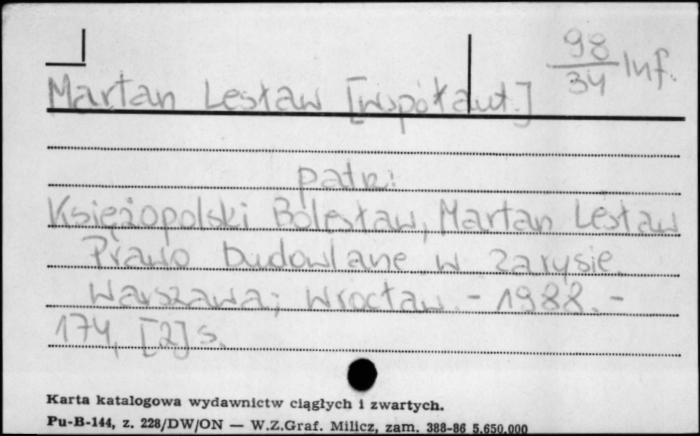 98/34 Inf.
Martan Lesław [współaut.]
patrz:
Księżopolski Bolesław, Martan Lesław
Prawo budowlane w zarysie.
Warszawa; Wrocław. - 1988. -
174, [2] s.
Karta katalogowa wydawnictw ciągłych i zwartych.
Pu-B-144, z. 228/DW/ON — W.Z.Graf. Milicz, zam. 388-86 5.650.000